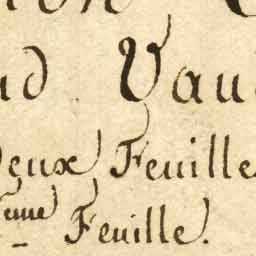 ud Vau
Deux Feuille
eme Feuille.